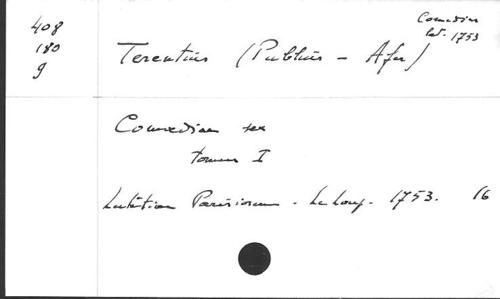 408
180
g
Comedies
lat. 1753
Terentius (Publius - Afer)
Comoediae sex
tomus I
Lutetiae Parisiorum - Le Loup - 1753. 16